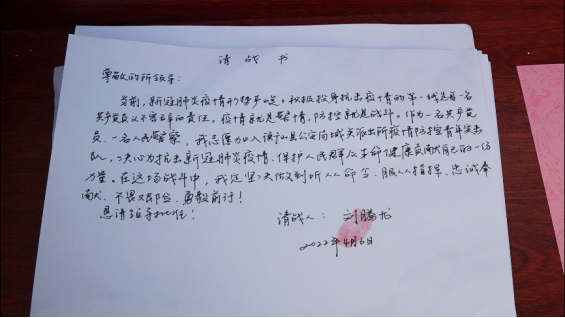 请战书
尊敬的所领导:
当前,新冠肺炎疫情形势严峻,积极投身抗击疫情的第一线是每一名
共产党员义不容辞的责任。疫情就是警情,防控就是战斗。作为一名共产党
员、一名人民警察,我志愿加入 县公安局城关派出所疫情防控青年突击
队,决心为抗击新冠肺炎疫情、保护人民群众生命健康贡献自己的一份
力量。在这场战斗中,我定坚决做到听从命令、服从指挥、忠诚奉
献、不畏艰险、勇敢前行!
恳请领导批准!
请战人: 刘腾龙
2022年4月6日